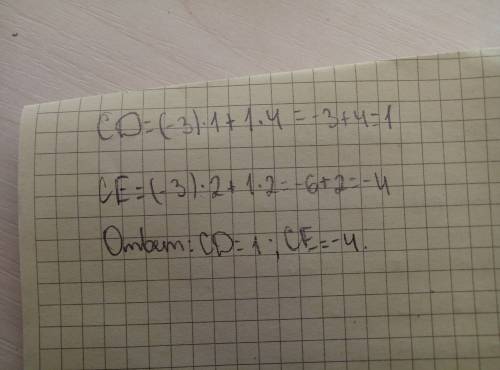 CD=(-3)·1+1·4=-3+4=1
CE=(-3)·2+1·2=-6+2=-4
Ответ: CD=1; CE=-4.